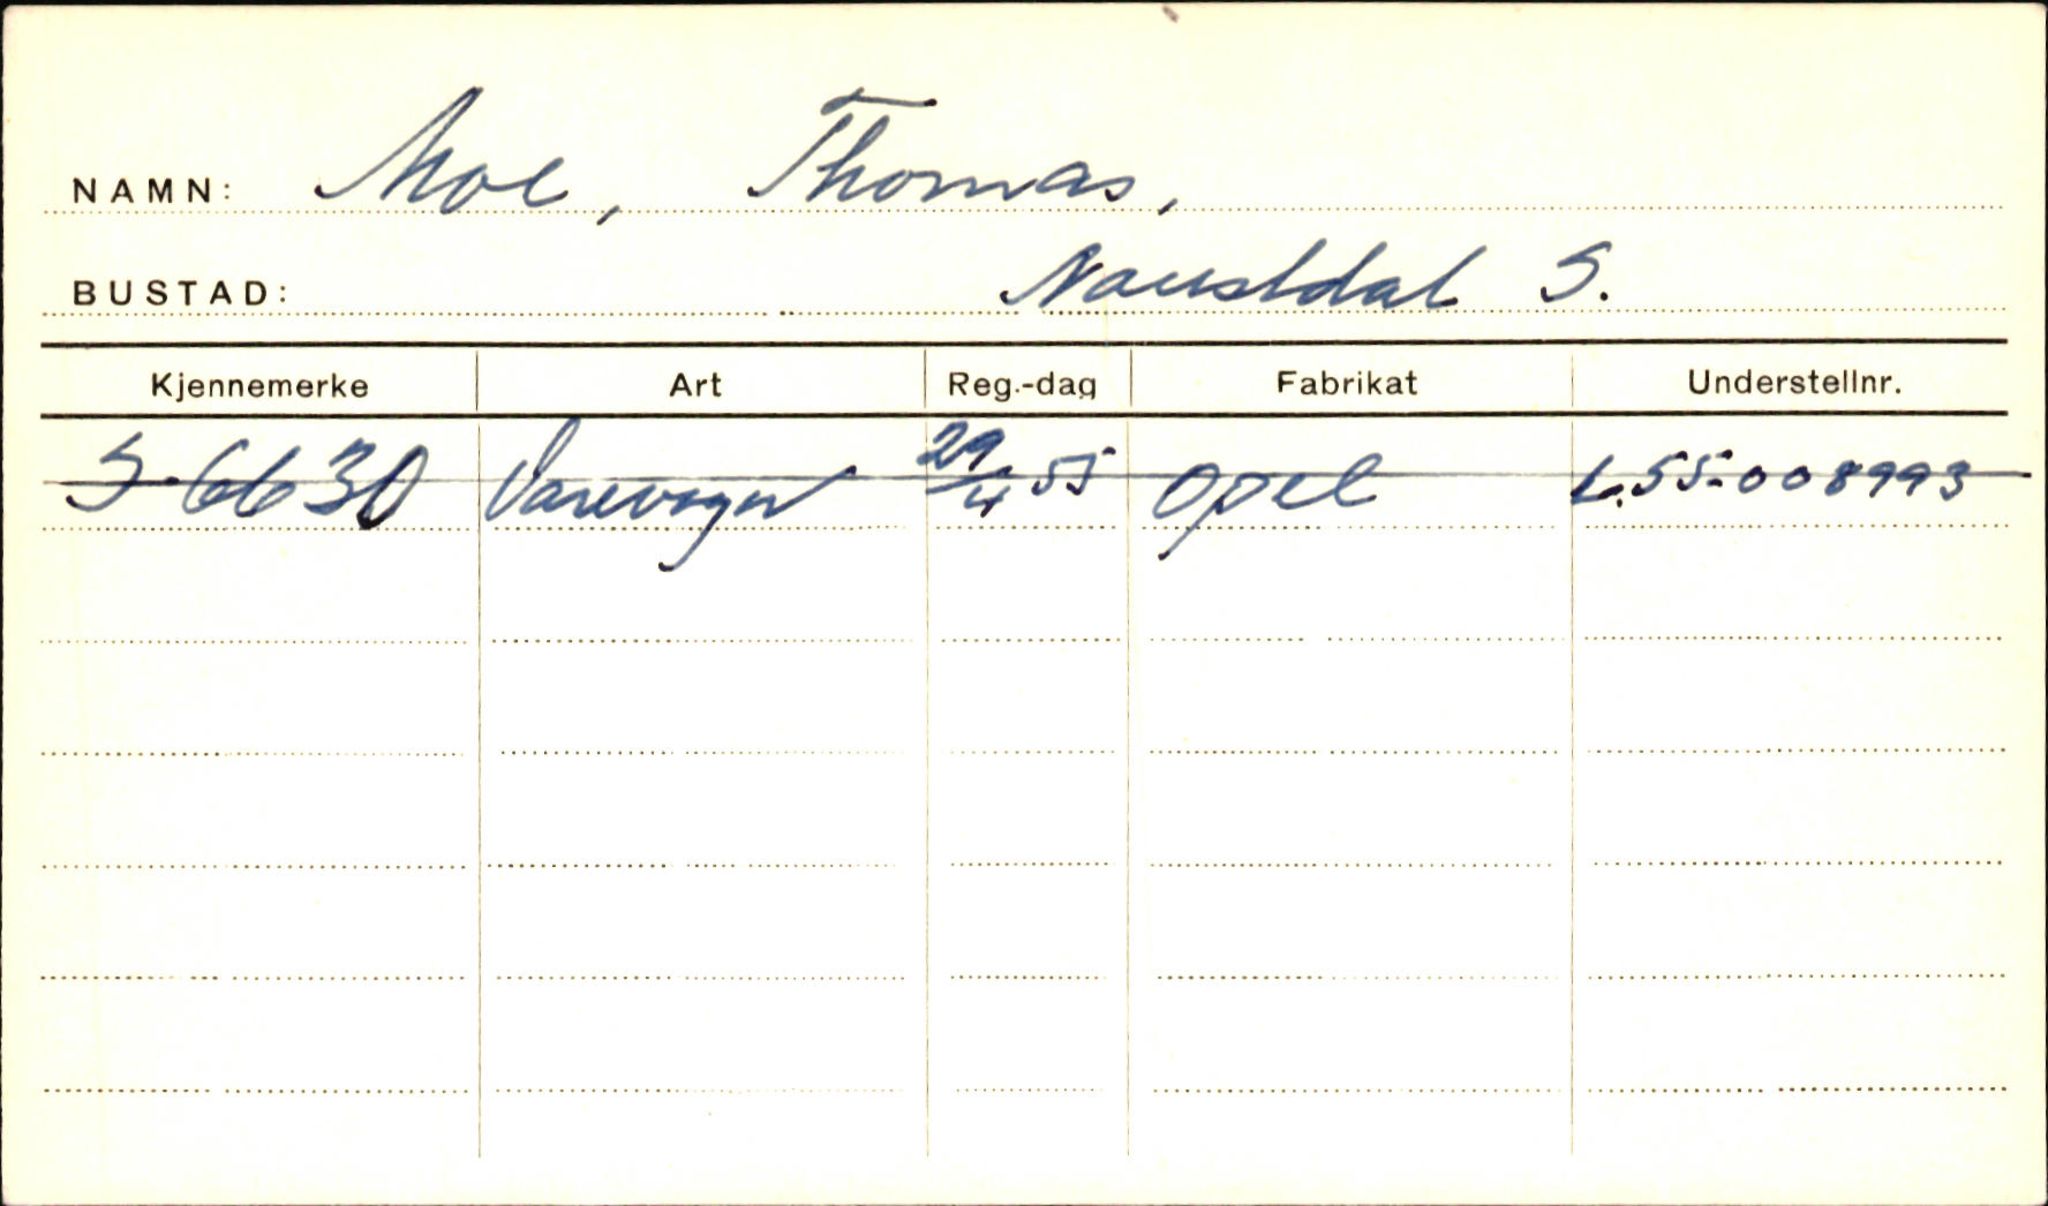 NAMN: Moe, Thomas,
BUSTAD: Naustdal S.
Kjennemerke Art Reg.-dag Fabrikat Understellnr.
S-6630 Varevogn 29/4 55 Opel L.55-008993